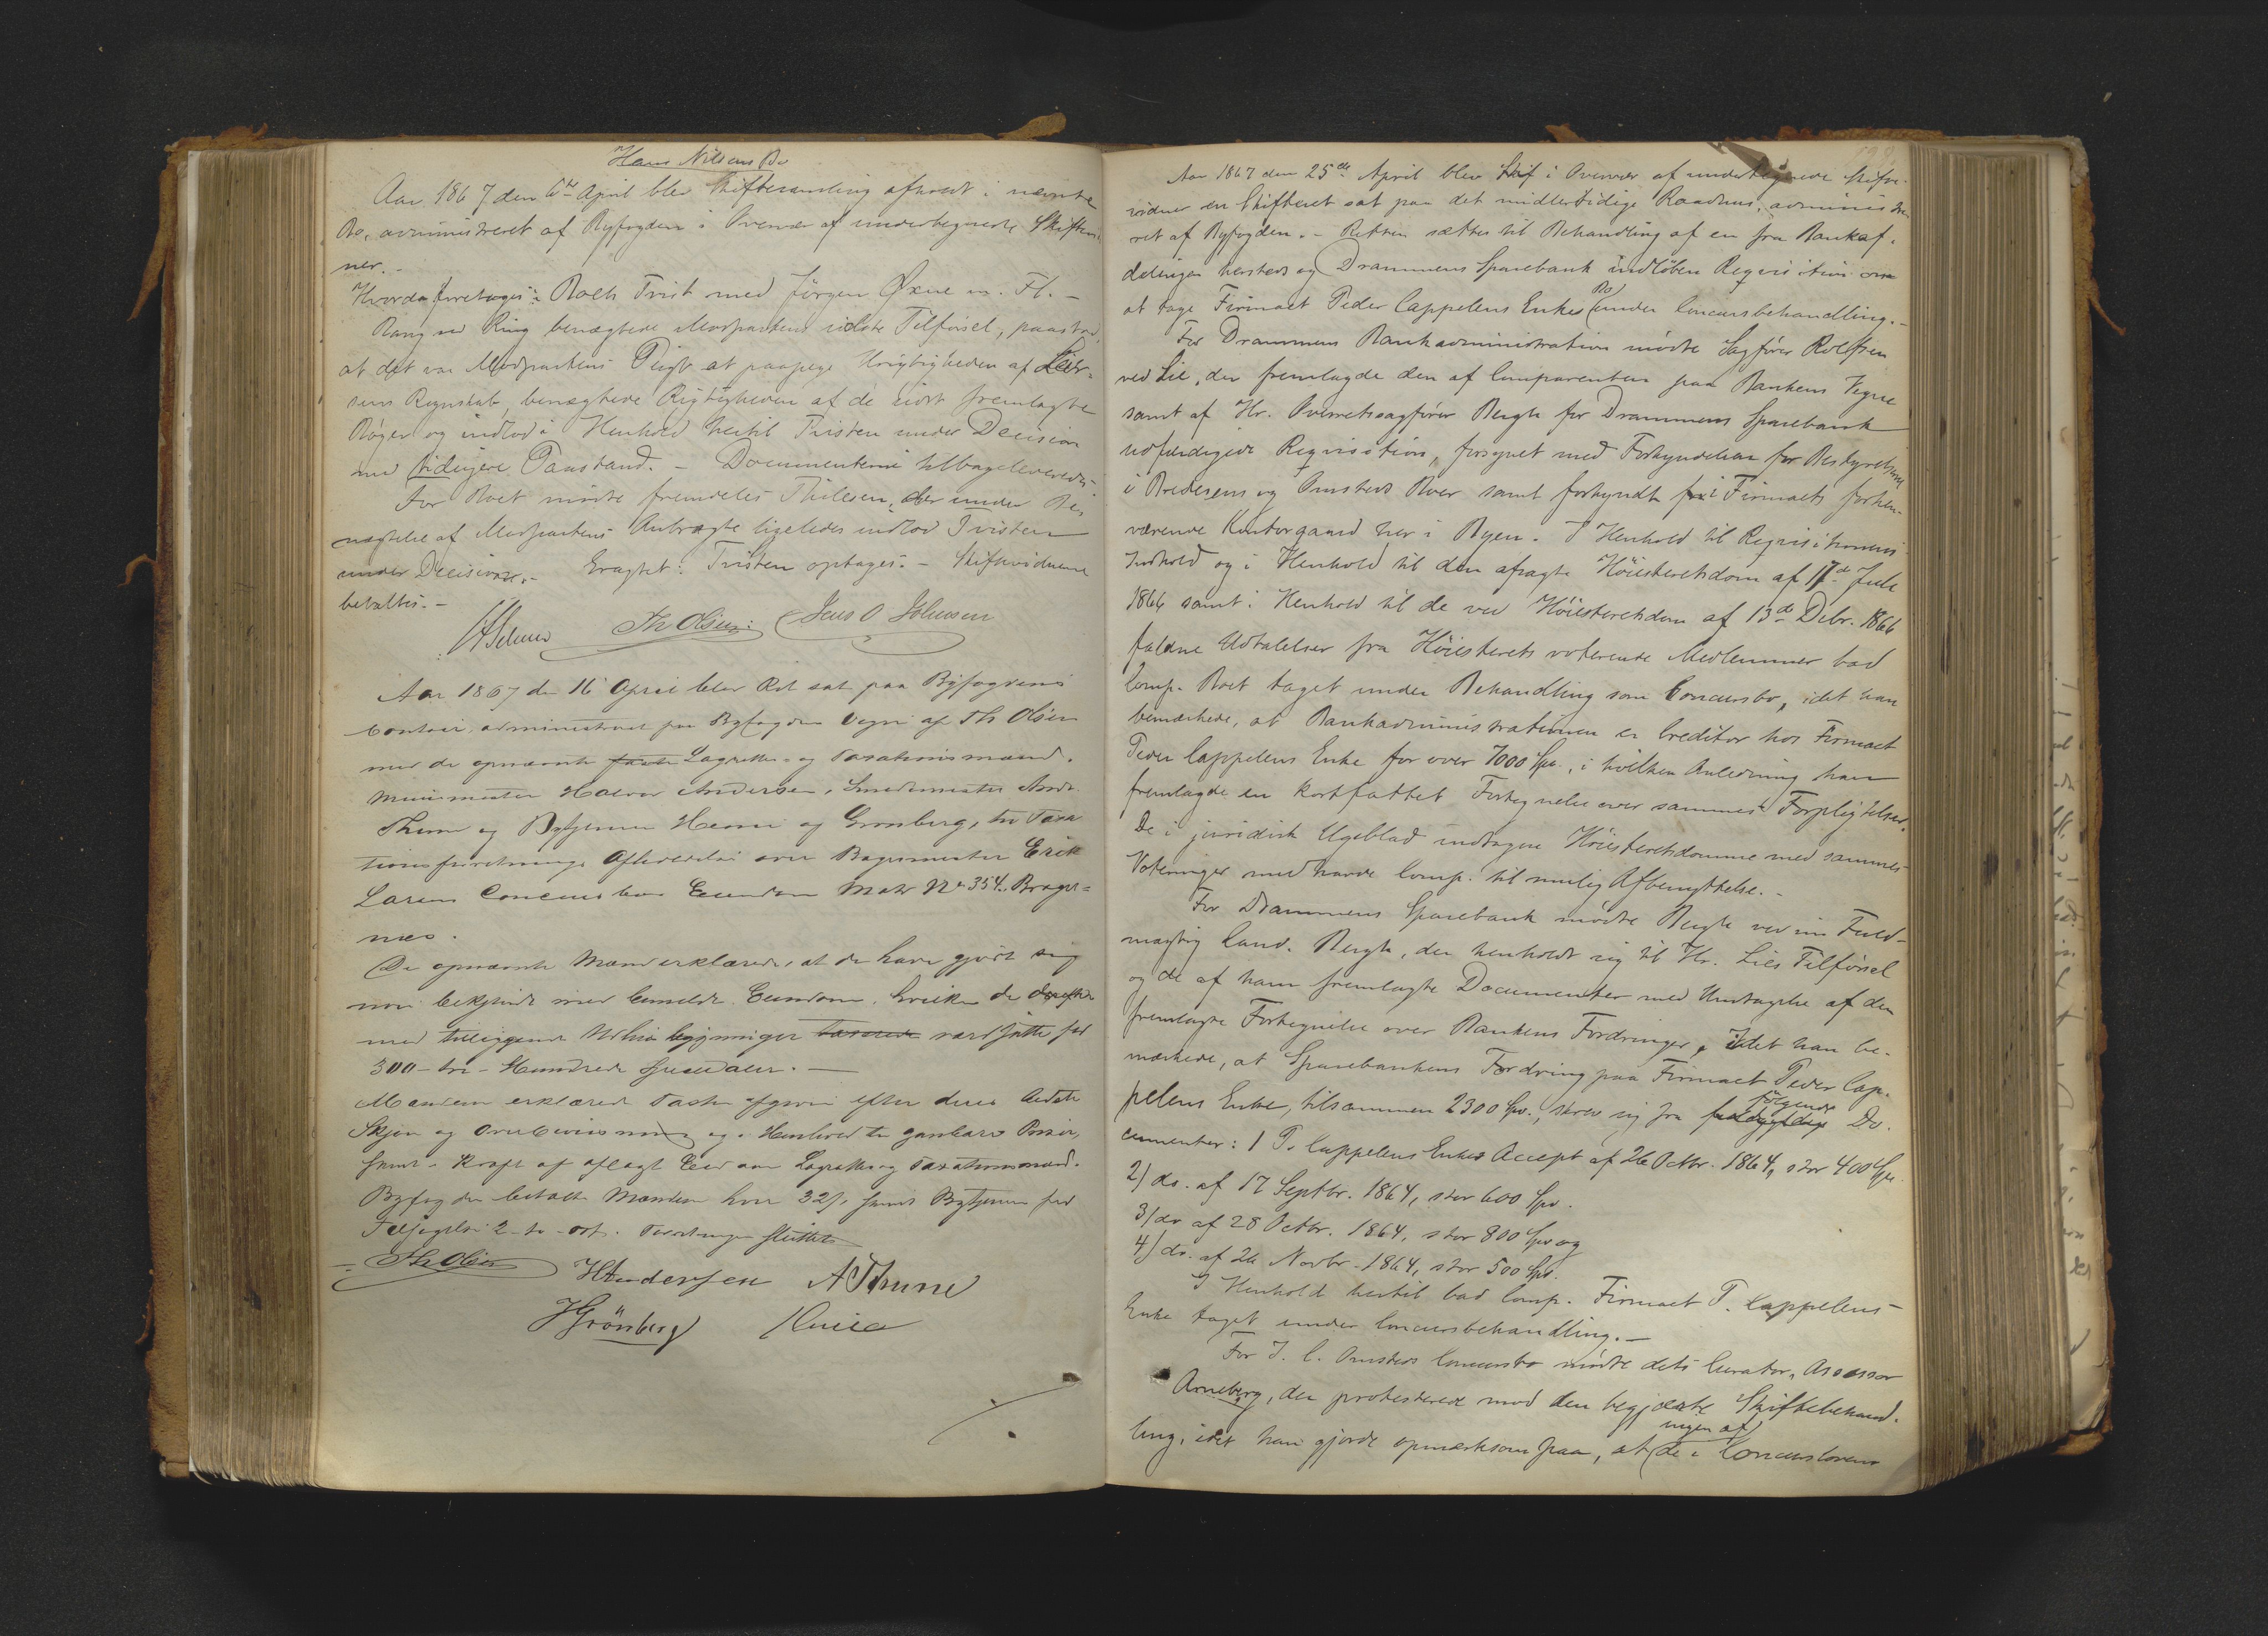 Hans Nilsens Bo
Aar 1867 den 6te April blev Skiftesamling afholdt i nævnte
Bo, administreret af Byfogden i Overvær af undertegnede Skiftevid-
ner. -
Hvorda foretoges: Boets Tvist med Jörgen Øxne m. Fl. -
Bang ved Ring benægtede Modpartens sidste Tilførsel, paastod
at det var Modpartens Pligt at paapege Urigtigheden af
sens Regnskab, benægtede Rigtigheden af de sidst fremlagte
Bøger og indlod i Henhold hertil Tvisten under Decision
med tidligere Paastand. - Documenterne tilbageleveredes.
For Boet mødte fremdeles Thilesen, der under Be-
nægtelse af Modpartens Anbragte ligeledes indlod Tvisten
under Decision. - Eragtet: Tvisten optages. - Skiftevidnerne
betaltes. -
Th Olsen Jens O Johnsen
Aar 1867 den 16 April blev Ret sat paa Byfogdens
Contoir, administreret paa Byfogdens Vegne af Th Olsen
med de opnævnte faste Lagrettes- og Taxationsmænd.
Muurmester Halvor Andersen, Smedemester Andr.
Thune og Bytjenerne og Grønberg, til Taxa
tionsforretnings Afholdelse over Bagermester Erik
Larsens Concursboes Eiendom Matr No 354. Brager=
næs.
De opnævnte Mænd erklærede, at de have gjort sig
nøie bekjendt med bemeldte Eiendom, hvilken de derefter
med tilliggende Udhusbygninger taxerede værdsatte for
300 - tre - Hundrede Speciedaler. -
Mændene erklærede Taxten afgiven efter deres bedste
Skjøn og Overbeviisning og i Henhold til gangbare Priser,
samt i Kraft af aflagt Eed som Lagrettes og Taxationsmænd.
Byfogden betalte Mændene hver 32 s, samt Bytjenerne for
Tilsigelse 2 - to - ort. Forretningen sluttet
Th Olsen HAndersen AThune
JGrönberg
Aar 1867 den 25de April blev Skif i Overvær af undertegnede Skifte-
vidner en Skifteret sat paa det midlertidige Raadhus, administre-
ret af Byfogden. - Retten sattes til Behandling af en fra Bankaf-
delingen hersteds og Drammens Sparebank indløben Reqvisition om
at tage Firmaet Peder Cappelens Enkes Bo under Concursbehandling. -
For Drammens Bankadministration mødte Sagfører Rolfsen
ved Lie, der fremlagde den af Comparenten paa Bankens Vegne
samt af Hr. Overretssagfører Bergh for Drammens Sparebank
udfærdigede Reqvisition, forsynet med Forkyndelse for Bestyrelsen
i Bredesens og Omsteds Boer samt forkyndt i Firmaets forhen-
værende Kontorgaard her i Byen. I Henhold til Reqvisitionens
Indhold og i Henhold til den afsagte Höiesteretsdom af 17de Juli
1866 samt i Henhold til de ved Höiesteretsdom af 13de Debr. 1866
faldne Udtalelser fra Höiesterets voterende Medlemmer bad
Comp. Boet taget under Behandling som Concursbo, idet han
bemærkede, at Bankadministrationen er Creditor hos Firmaet
Peder Cappelens Enke for over 7000 Spd., i hvilken Anledning han
fremlagde en kortfattet Fortegnelse over sammes Forpligtelser.
De i juridisk Ugeblad indtagne Höiesteretsdomme med sammes
Voteringer medhavde Comp. til mulig Afbenyttelse. -
For Drammens Sparebank mødte Bergh ved sin Fuld-
mægtig Cand. Bergh, der henholdt sig til Hr. Lies Tilførsel
og de af ham fremlagte Documenter med Undtagelse af den
fremlagte Fortegnelse over Bankens Fordringer, idet han be-
mærkede, at Sparebankens Fordring paa Firmaet Peder Cap-
pelens Enke, tilsammen 2300 Spd., skrev sig fra følgende Do-
cumenter: 1 P. Cappelens Enkes Accept af 26 Octbr. 1864, stor 400 Spd.
2) do. af 17 Septbr. 1864, stor 600 Spd.
3) do af 28 Octbr. 1864, stor 800 Spd og
4) do. af 26 Novbr. 1864, stor 500 Spd.
I Henhold hertil bad Comp. Firmaet P. Cappelens
Enke taget under Concursbehandling. -
For J. C. Omsteds Concursbo mødte dets Curator, Assessor
Arneberg, der protesterede mod den begjærte Skiftebehand-
ling, idet han gjorde opmærksom paa, at ingen af de i Concurslovens